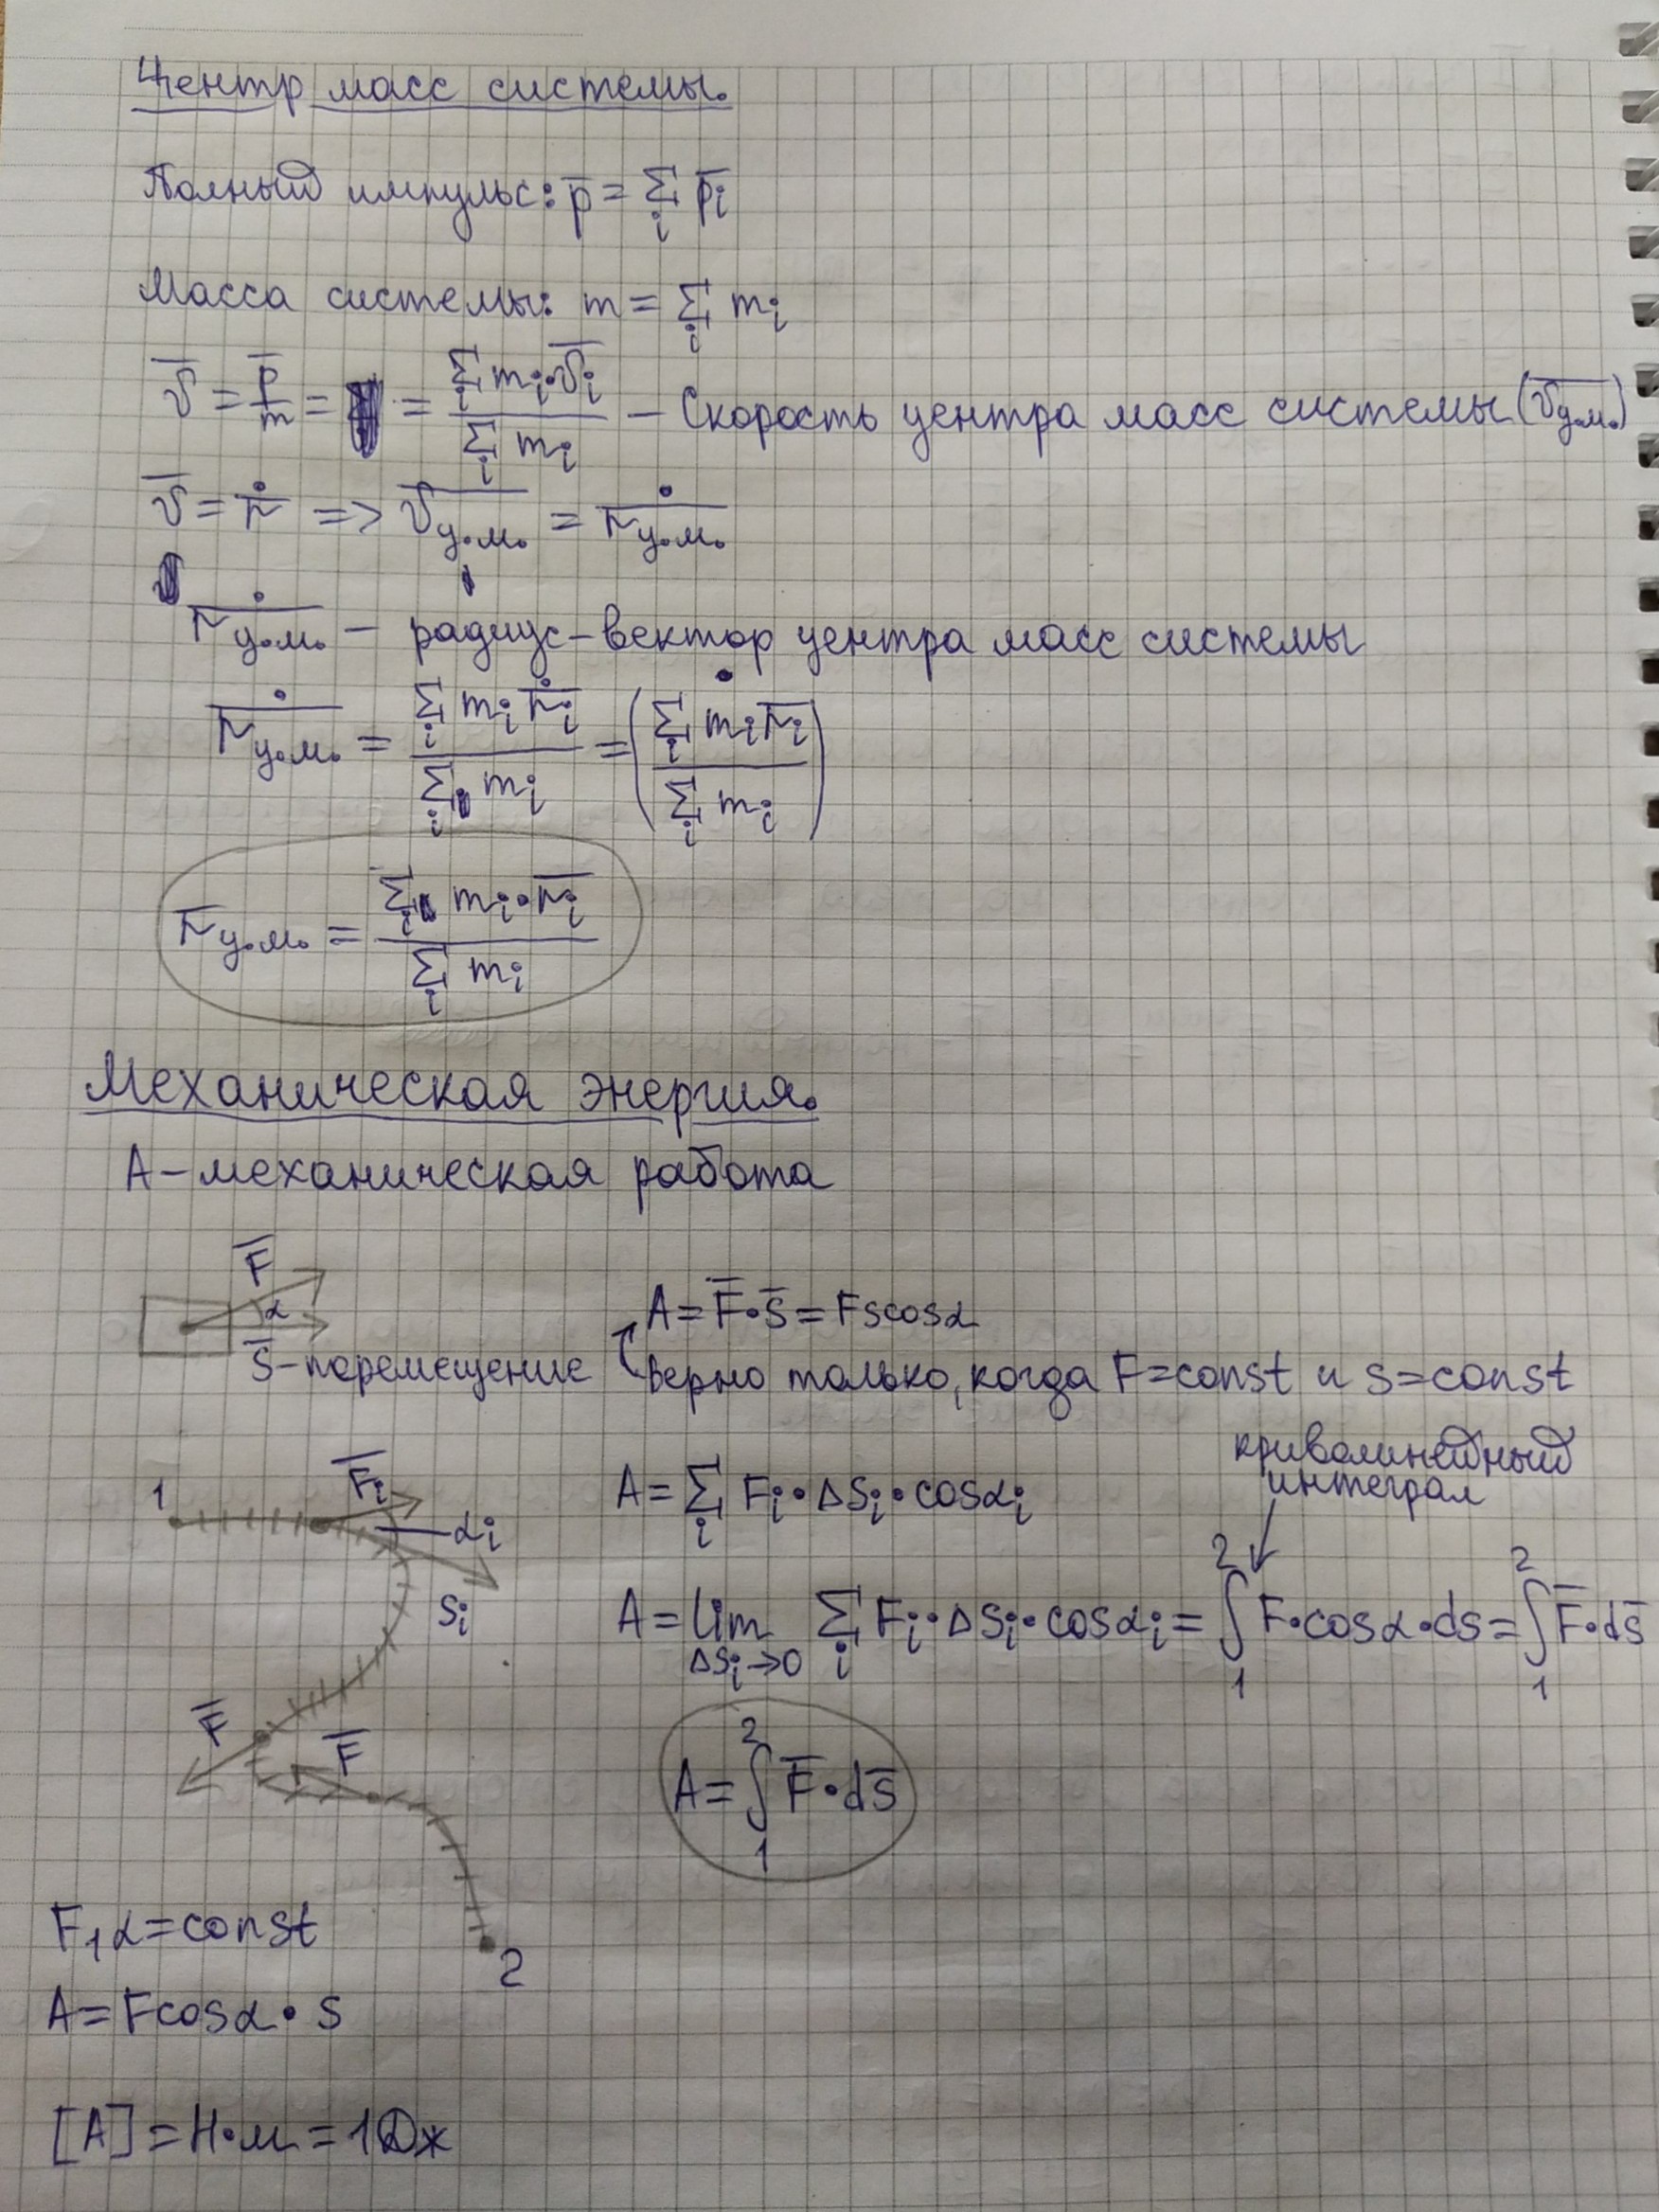 Центр масс системы.
Полный импульс: p̅ = Σᵢ p̅ᵢ
Масса системы: m = Σᵢ mᵢ
v̅ = p̅/m = = (Σᵢ mᵢ·v̅ᵢ)/(Σᵢ mᵢ) – Скорость центра масс системы (v̅ц.м.)
v̅ = ṙ̅ => v̅ц.м. = ṙ̅ц.м.
ṙ̅ц.м. – радиус-вектор центра масс системы
ṙ̅ц.м. = (Σᵢ mᵢ ṙ̅ᵢ)/(Σᵢ mᵢ) = ((Σᵢ mᵢ r̅ᵢ)/(Σᵢ mᵢ))˙
r̅ц.м. = (Σᵢ mᵢ·r̅ᵢ)/(Σᵢ mᵢ)
Механическая энергия.
A – механическая работа
F̅
α
s̅ – перемещение
A = F̅·s̅ = Fscosα
верно только, когда F=const и s=const
1
F̅ᵢ
αᵢ
sᵢ
F̅
F̅
2
A = Σᵢ Fᵢ·Δsᵢ·cosαᵢ
криволинейный
интеграл
A = lim Δsᵢ→0 Σᵢ Fᵢ·Δsᵢ·cosαᵢ = ∫₁² F·cosα·ds = ∫₁² F̅·ds̅
A = ∫₁² F̅·ds̅
F, α = const
A = Fcosα·s
[A] = Н·м = 1Дж